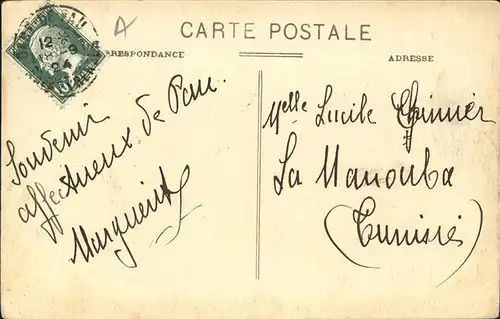 A
CARTE POSTALE
RRESPONDANCE
ADRESSE
Souvenir
affectueux de Pau.
Marguerite
Melle Lucile
La Manouba
(Tunisie)